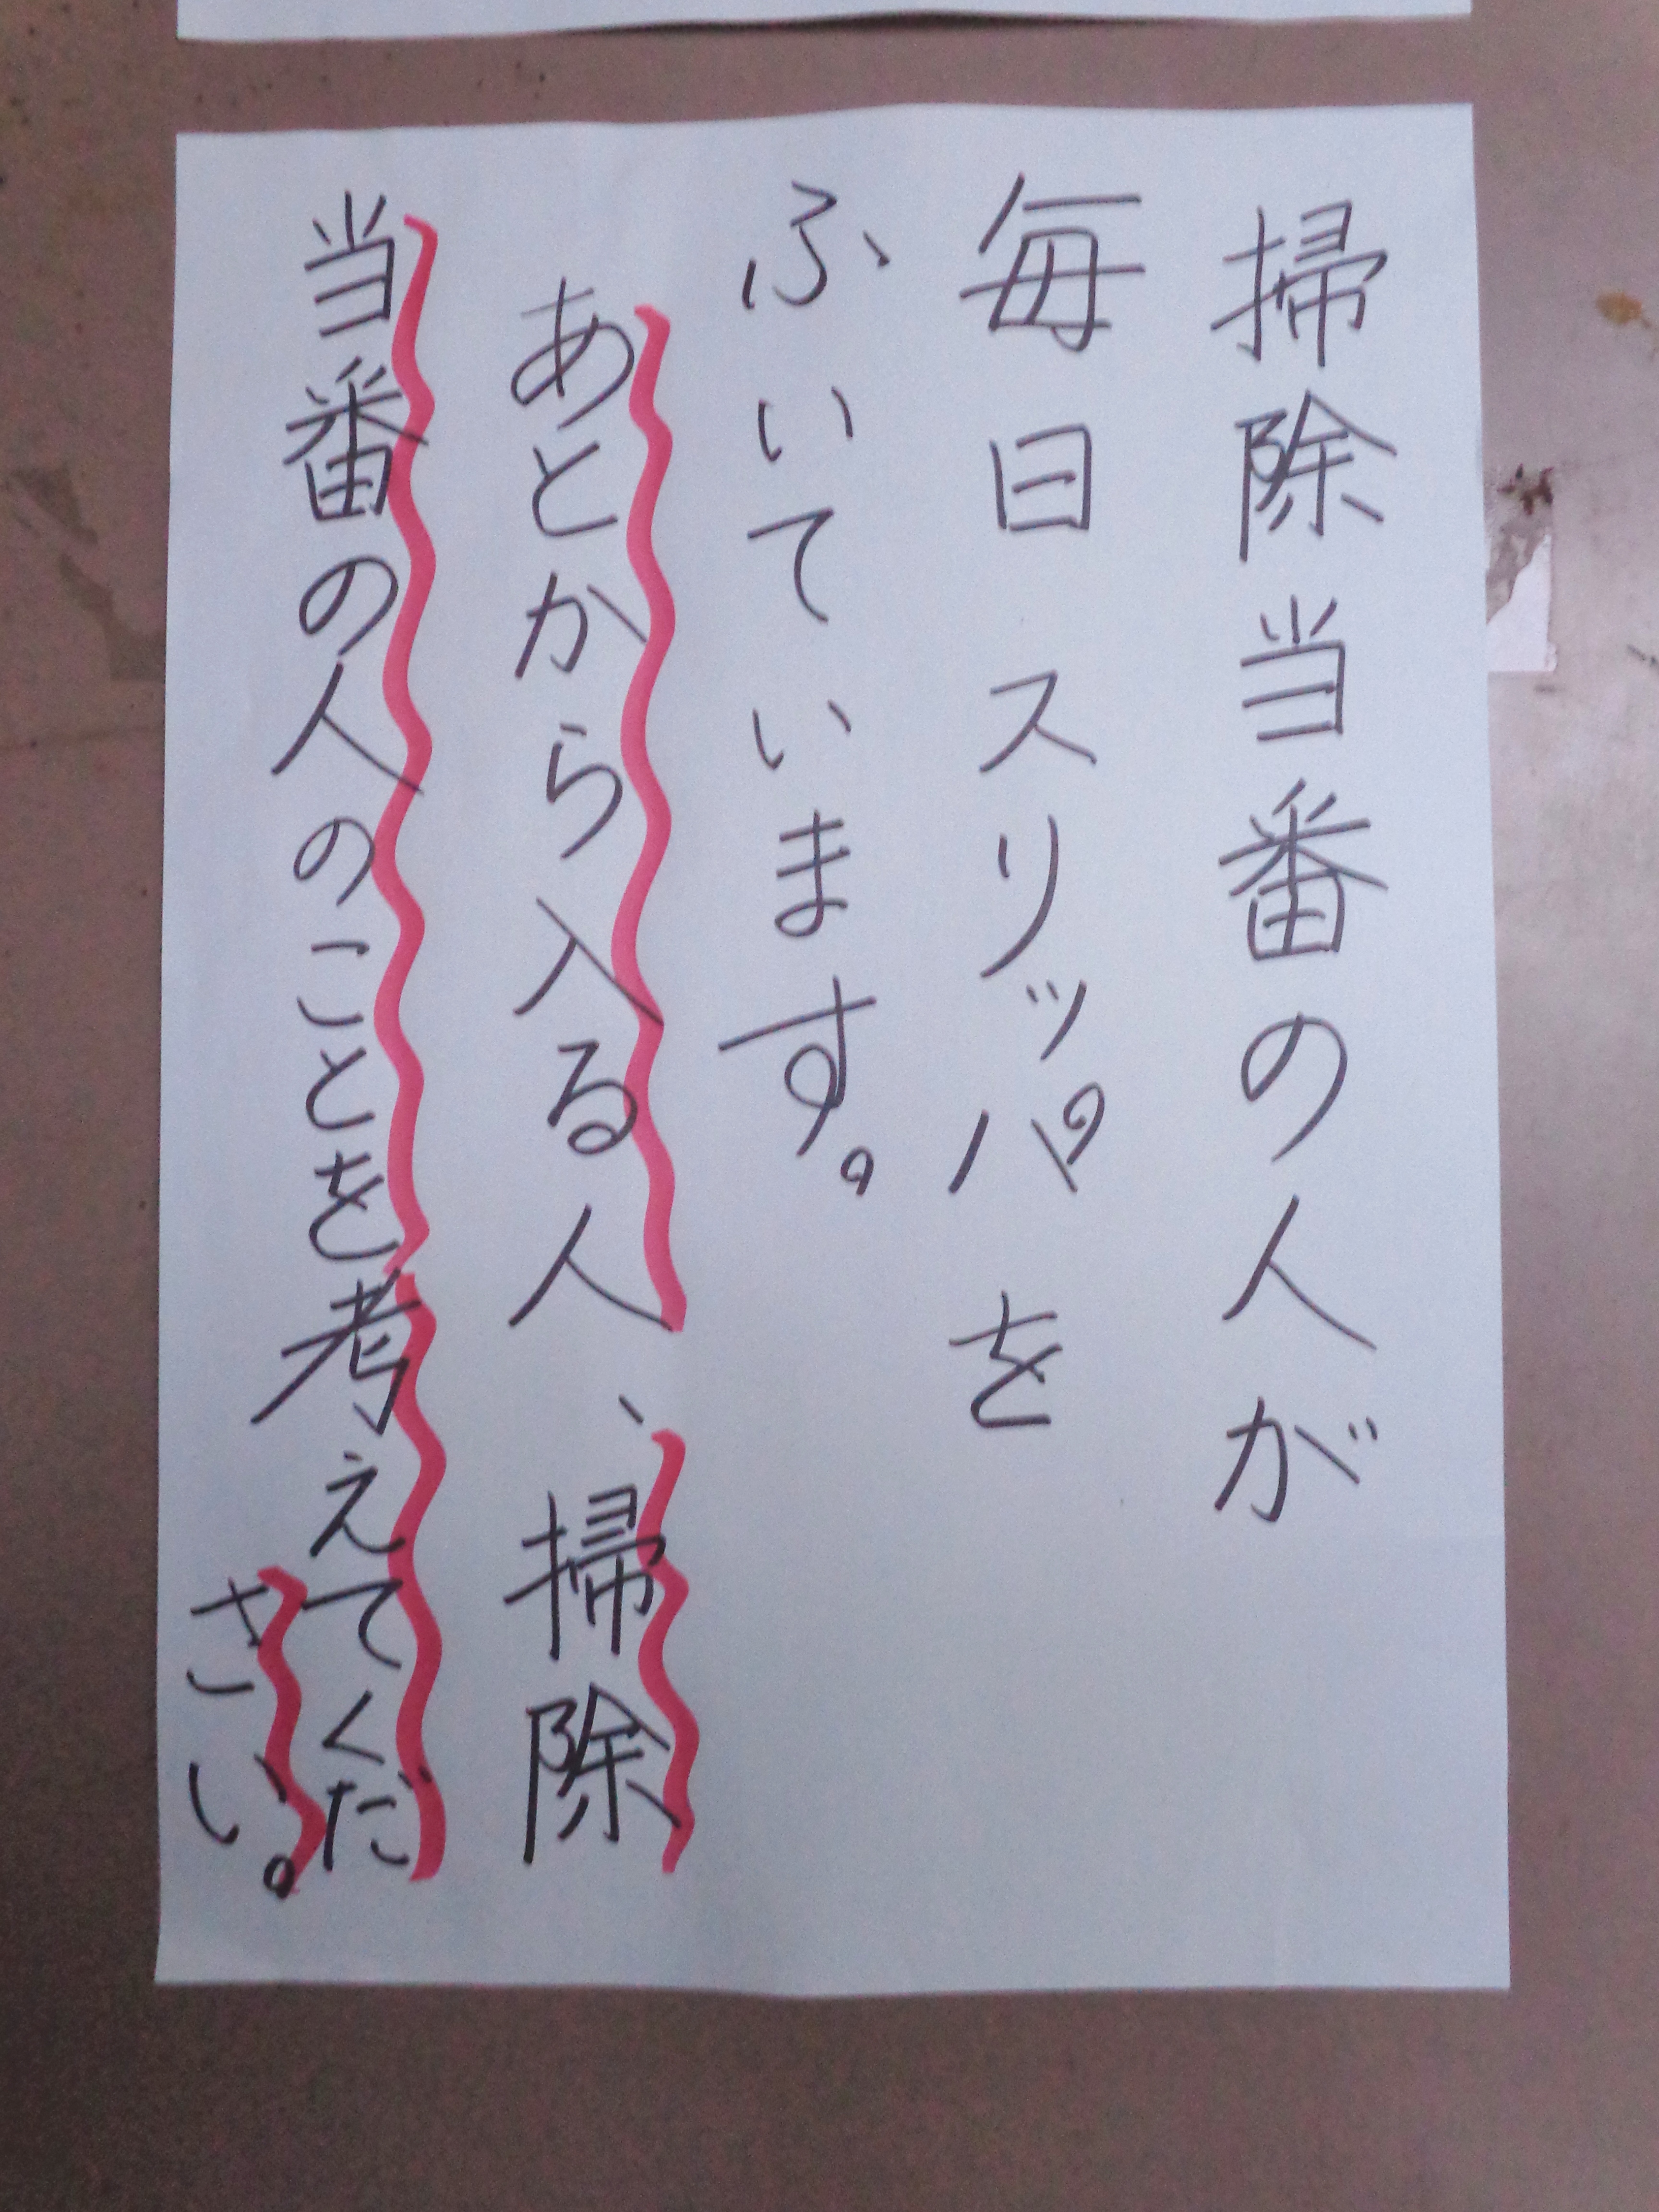 掃除当番の人が
毎日スリッパを
ふいています。
あとから入る人、掃除
当番の人のことを考えてくだ
さい。